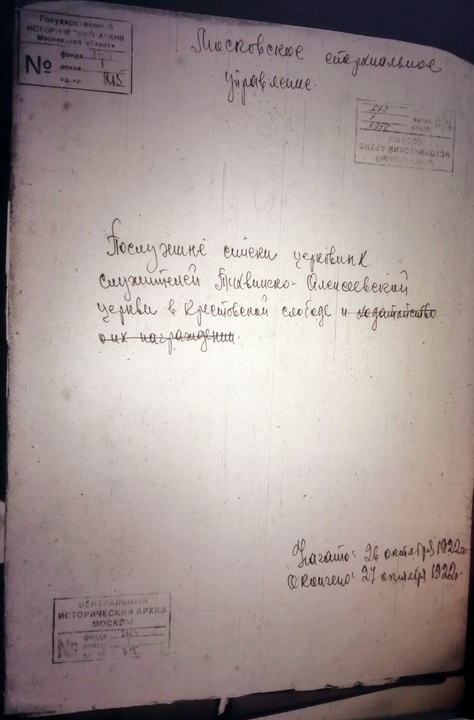 Государственный
ИСТОРИЧЕСКИЙ АРХИВ
Московской области
№
фонда
опись 1
ед. хр. 213
Московское епархиальное
управление.
ЦЕНТРАЛЬНЫЙ
ИСТОРИЧЕСКИЙ АРХИВ
МОСКВЫ
Послужные списки церковных
служителей Тихвинско-Алексеевской
церкви в Крестовской слободе и ходатайство
о их награждении.
Начато: 26 октября 1922г.
Окончено: 27 октября 1922г.
ЦЕНТРАЛЬНЫЙ
ИСТОРИЧЕСКИЙ АРХИВ
МОСКВЫ
№
фонда 2303
опись 1